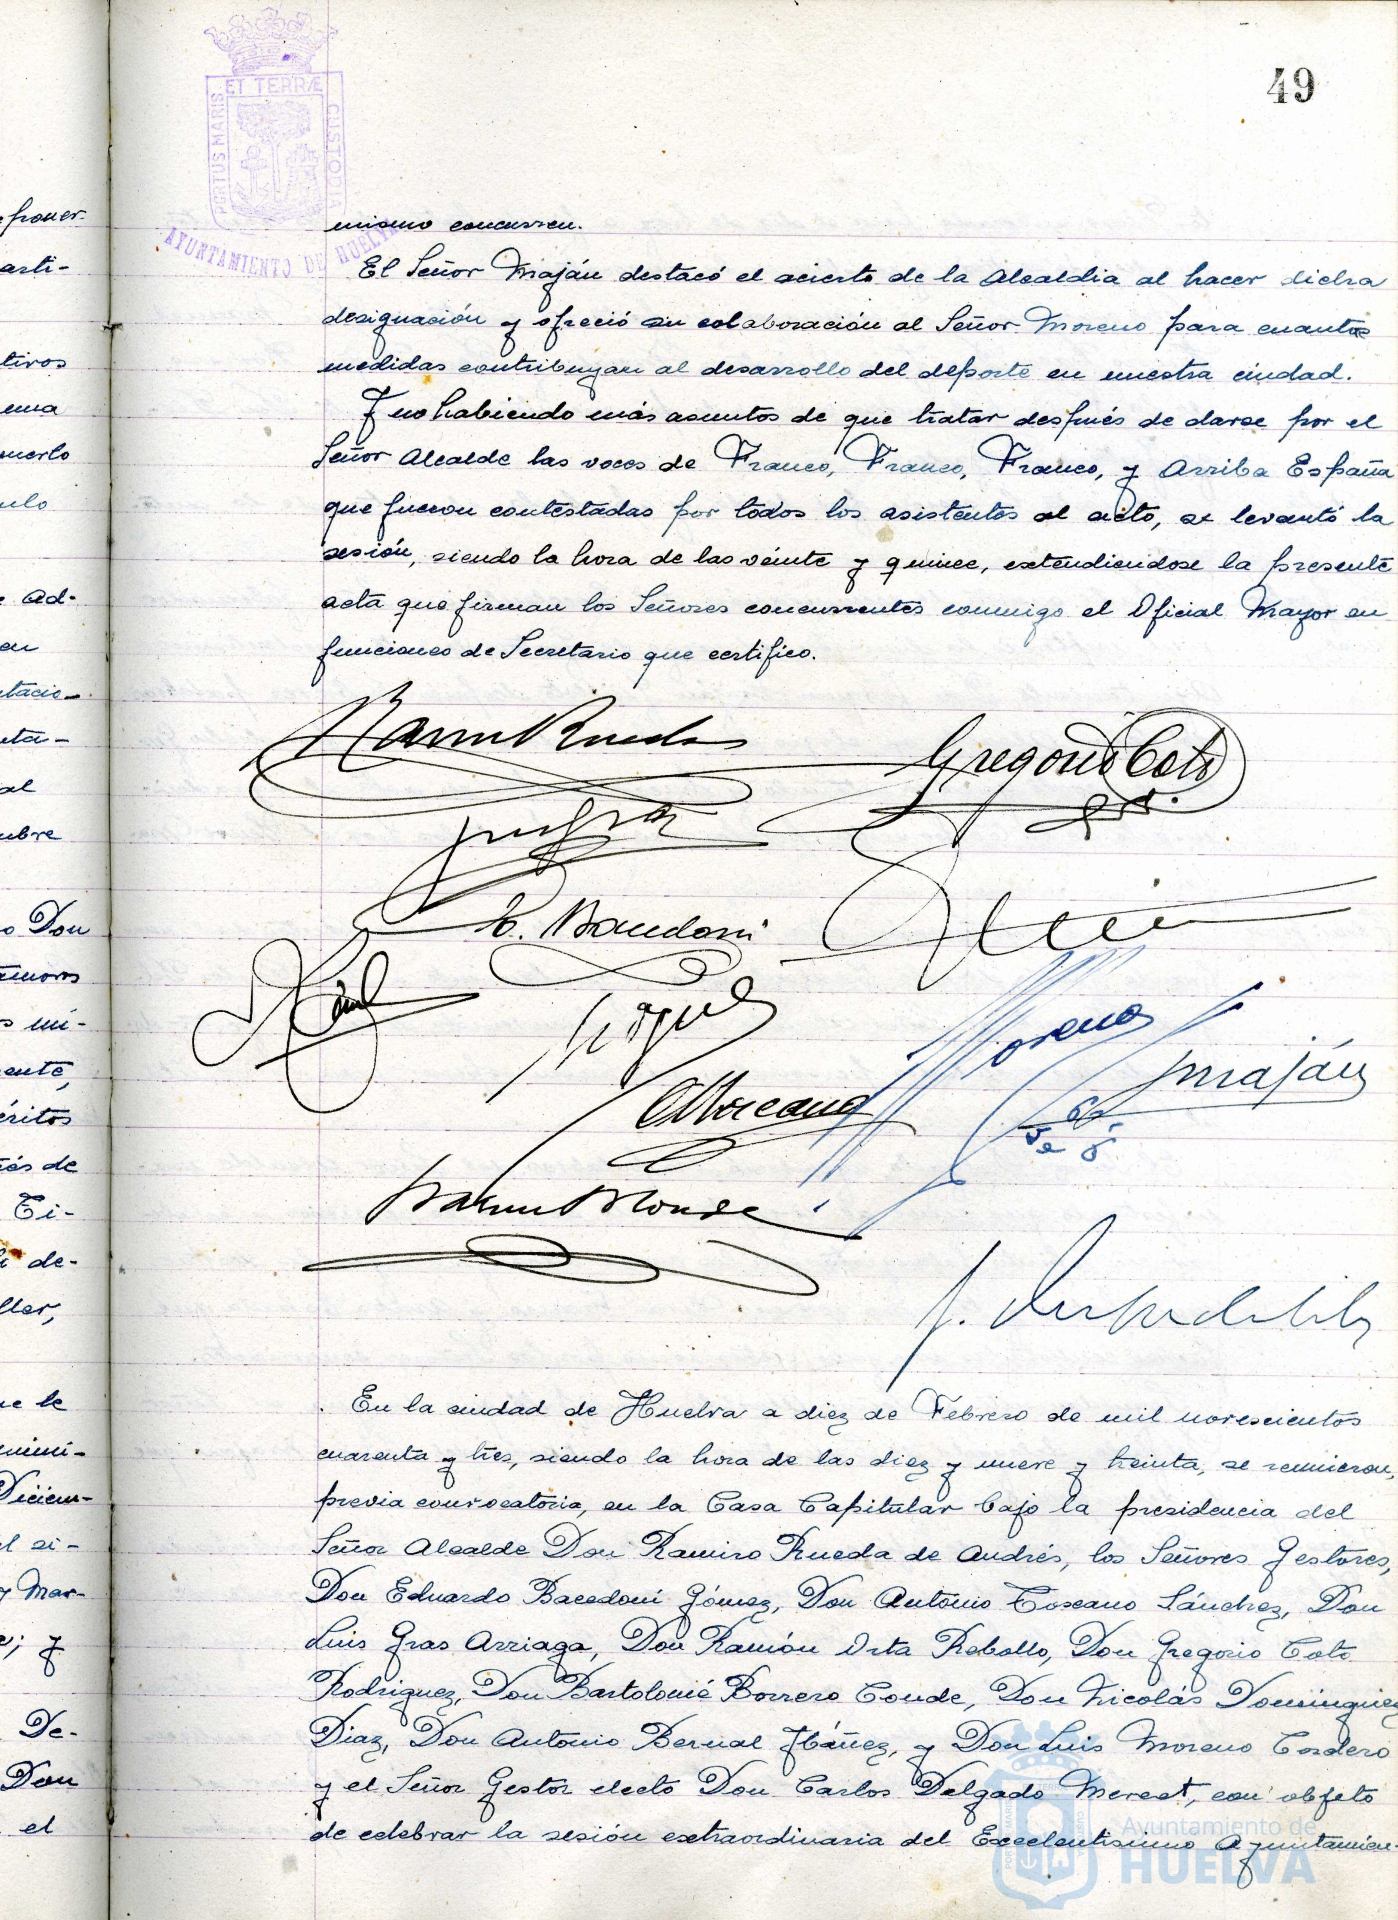 49
ET TERRÆ
PORTUS MARIS
CUSTODIA
AYUNTAMIENTO DE HUELVA
mismo concurren.
El Señor Maján destacó el acierto de la Alcaldia al hacer dicha
designación y ofreció su colaboración al Señor Moreno para cuantas
medidas contribuyan al desarrollo del deporte en nuestra ciudad.
Y no habiendo más asuntos de que tratar después de darse por el
Señor Alcalde las voces de Franco, Franco, Franco, y Arriba España
que fueron contestadas por todos los asistentes al acto, se levantó la
sesión, siendo la hora de las veinte y quince, extendiendose la presente
acta que firman los Señores concurrentes conmigo el Oficial Mayor en
funciones de Secretario que certifico.
Gregorio Coto
Moreno
Maján
En la ciudad de Huelva a diez de Febrero de mil novescientos
cuarenta y tres, siendo la hora de las diez y nueve y treinta, se reunieron,
previa convocatoria, en la Casa Capitular bajo la presidencia del
Señor Alcalde Don Ramiro Rueda de Andrés, los Señores Gestores,
Don Eduardo Bacedoni Gómez, Don Antonio Toscano Sánchez, Don
Luis Gras Arriaga, Don Ramón Orta Rebollo, Don Gregorio Coto
Rodriguez, Don Bartolomé Borrero Conde, Don Nicolás Dominguez
Diaz, Don Antonio Bernal Ibáñez, y Don Luis Moreno Cordero
y el Señor Gestor electo Don Carlos Delgado Mercet, con objeto
de celebrar la sesión extraordinaria del Excelentisimo Ayuntamien-
Ayuntamiento de
HUELVA